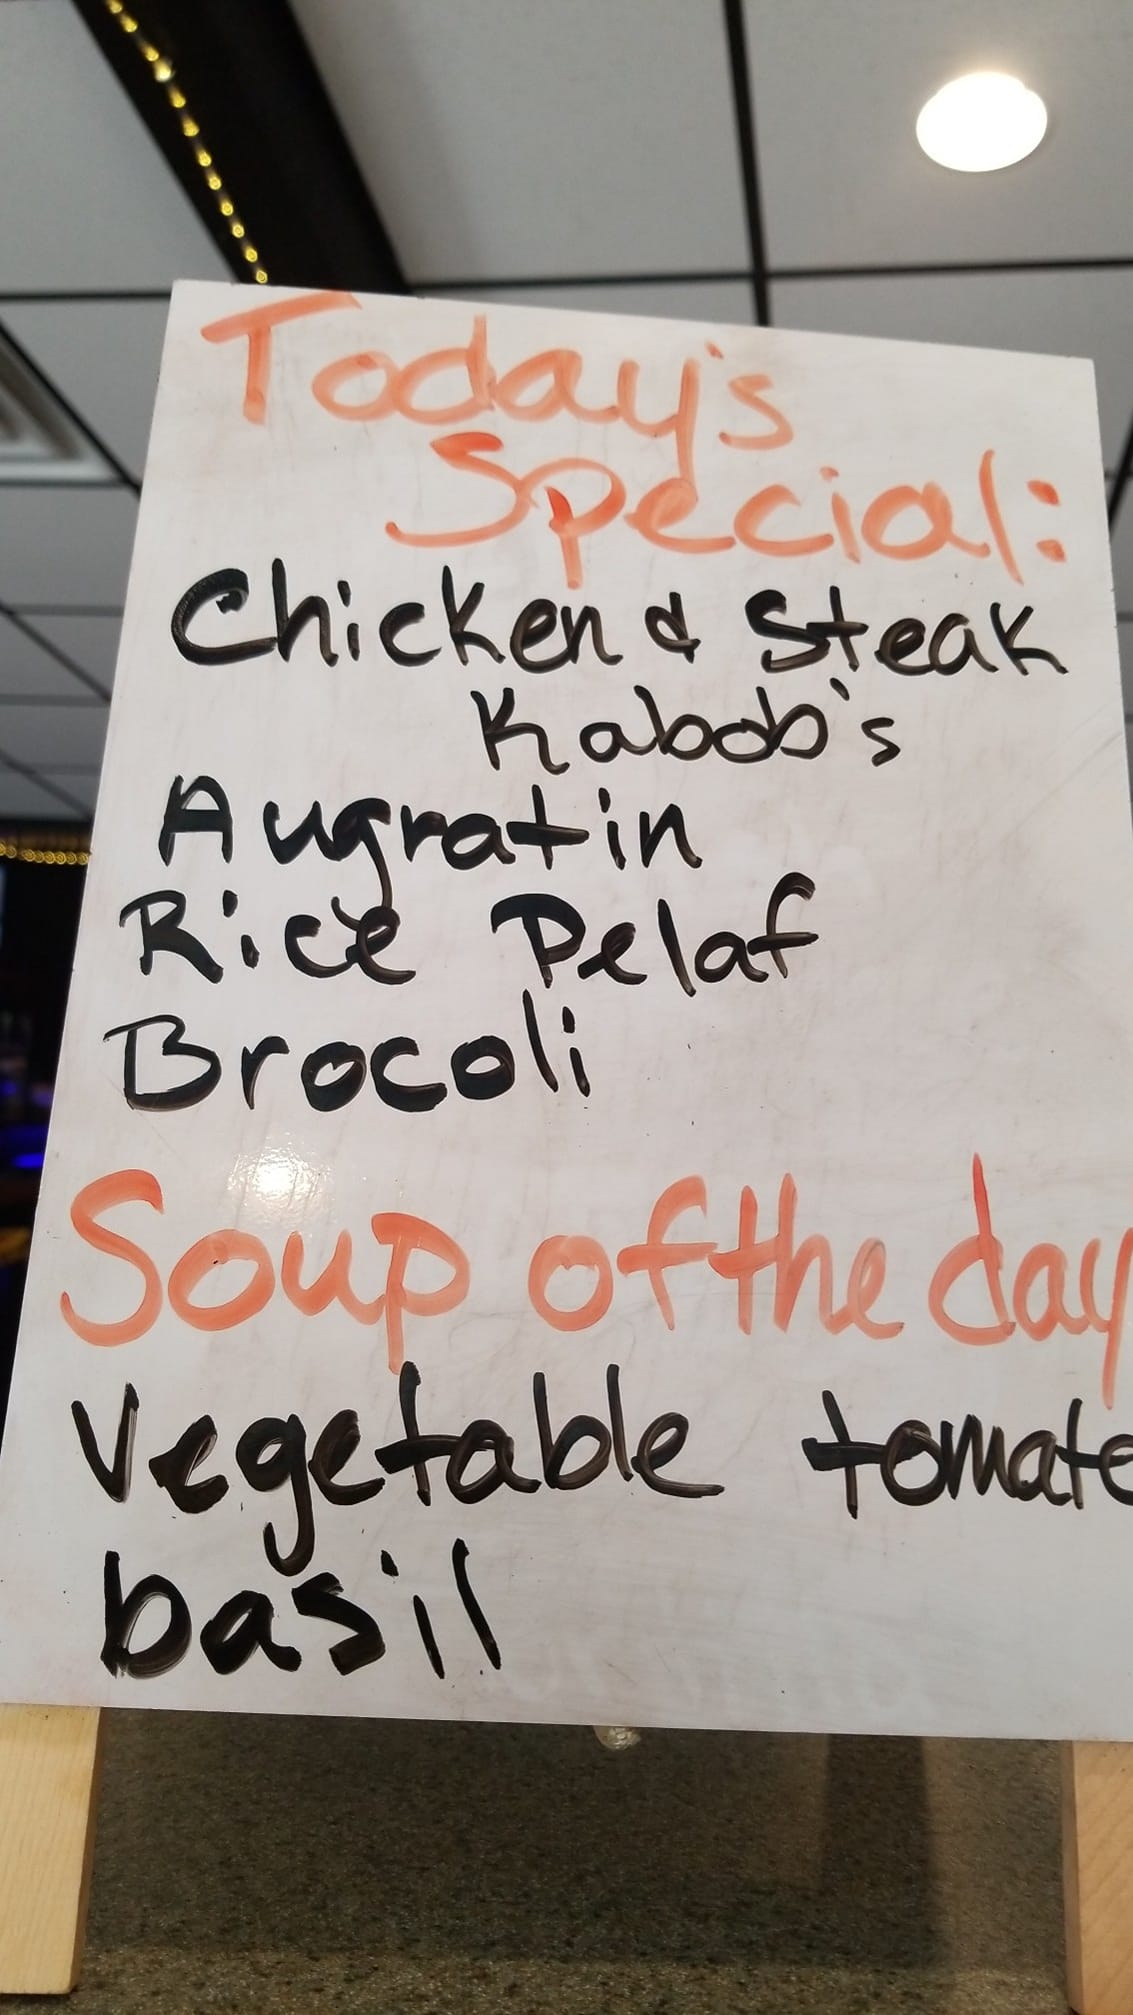 Today's
Special:
Chicken & Steak
Kabob's
Augratin
Rice Pelaf
Brocoli
Soup of the day
Vegetable tomato
basil